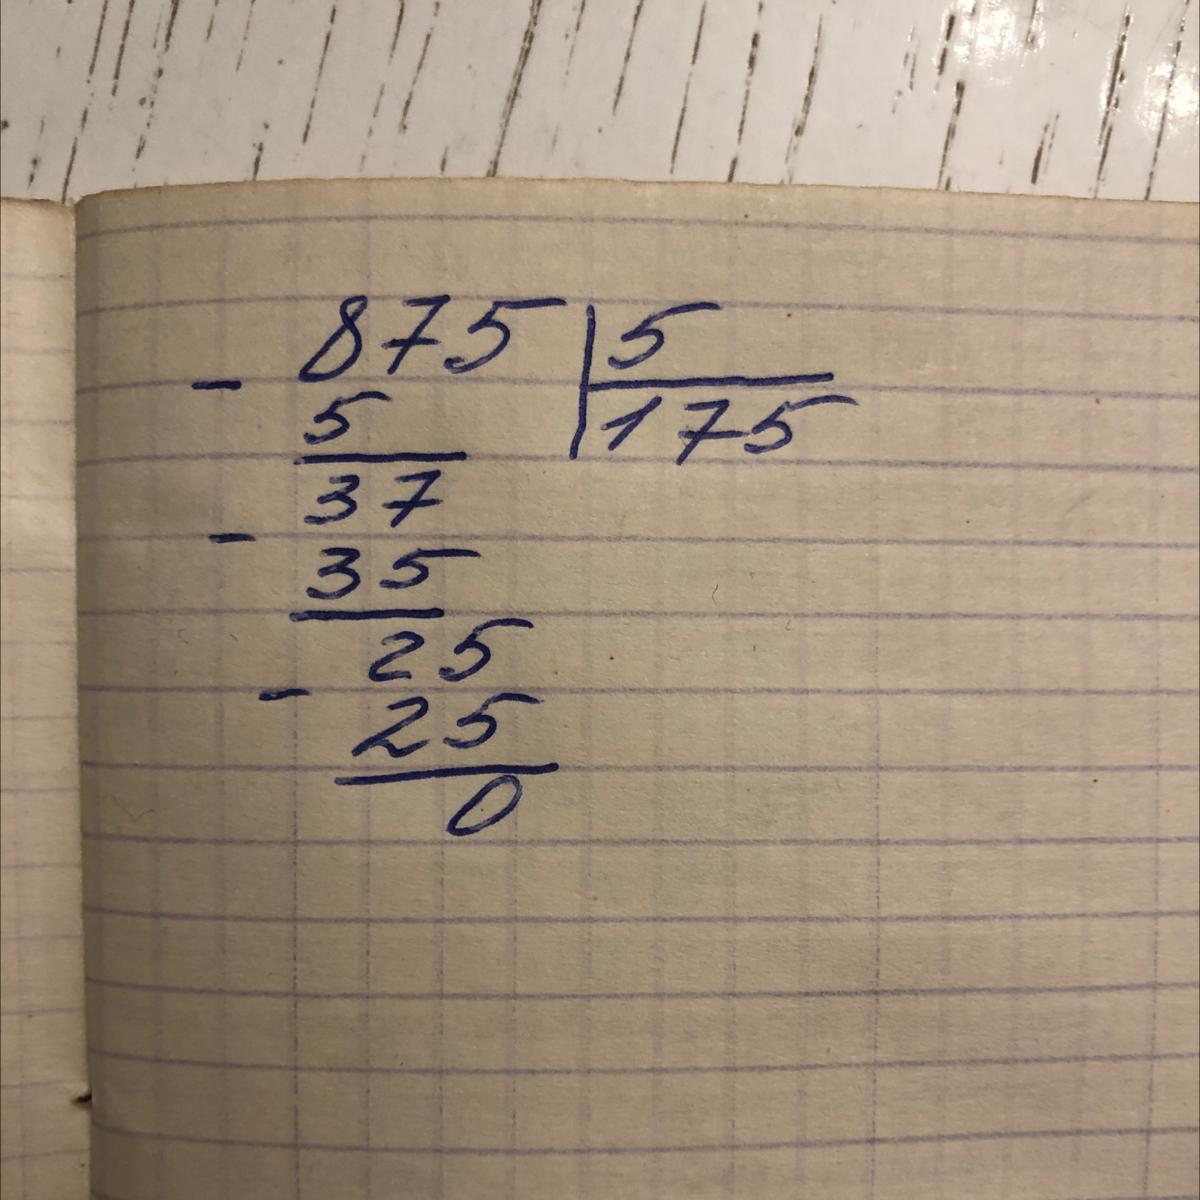 875 | 5
- 5 | 175
37
- 35
25
- 25
0